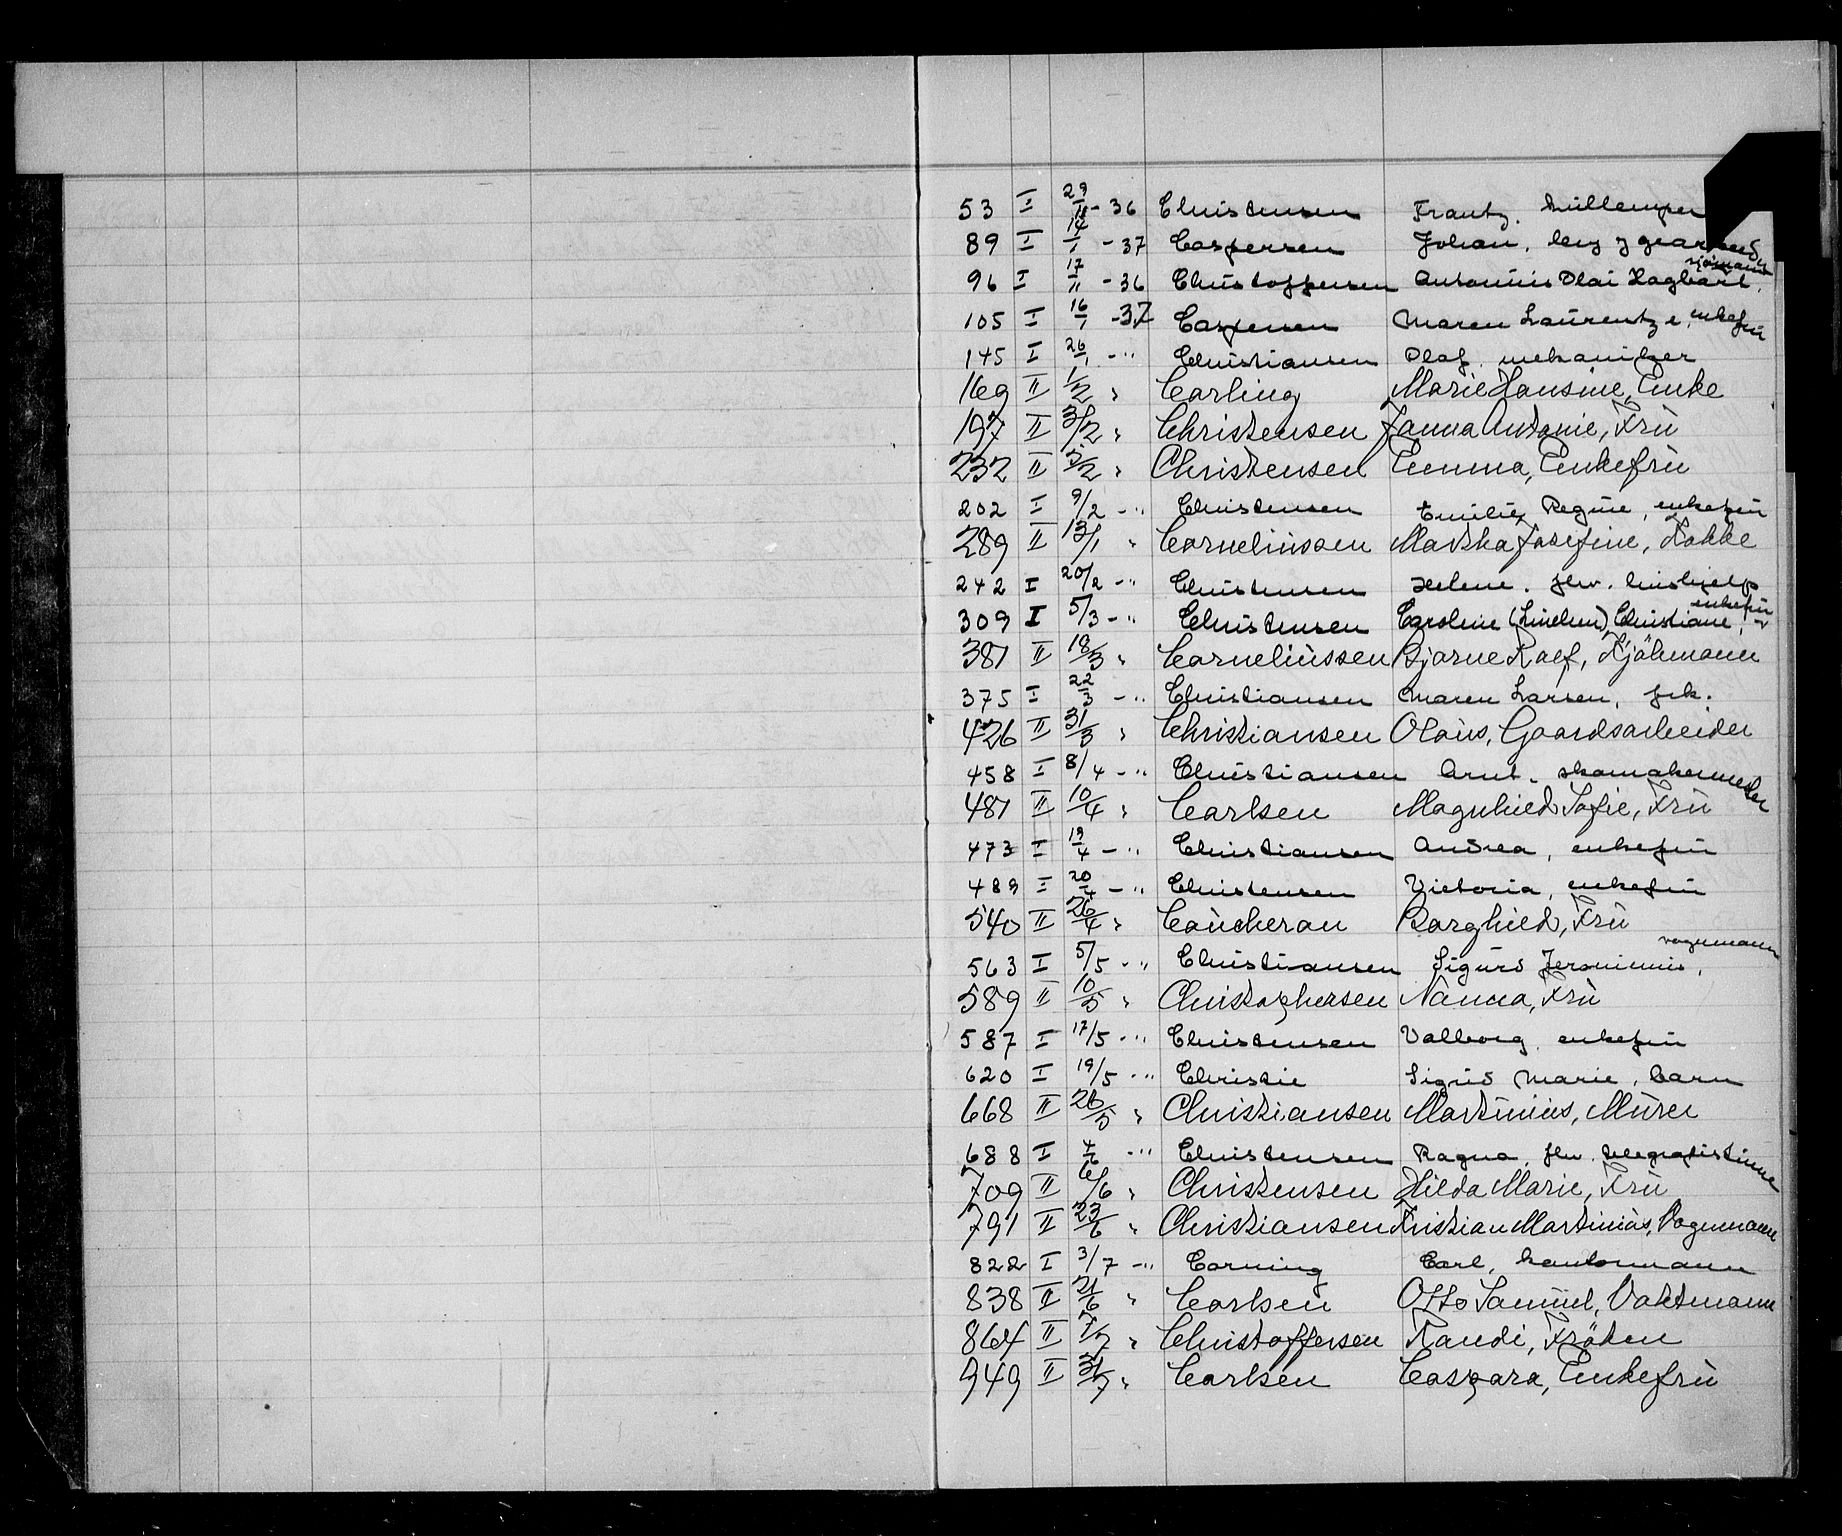 53 I 29/11 - 36 Christensen Frantz.
89 I 14/1 - 37 Caspersen Johan,
96 I 17/11 - 36 Christoffersen Antonius Olai Hagbart, sjømann
105 I 16/1 - 37 Caspersen Maren Laurentze, enkefrü
145 I 26/1 - " Christiansen Olaf, mekaniker
169 II 1/2 " Carling Marie Hansine, Enke
197 II 3/2 " Christensen Janna Antonie, Frü
232 II 5/2 " Christensen Emma, Enkefrü
202 I 9/2 - " Christensen Emilie Regine, enkefrü
289 II 13/1 " Corneliussen Martha Josefine, Kokke
242 I 20/2 - " Christensen Helene, fhv. hüshjelp
309 I 5/3 - " Christensen Caroline (Linchen) Christiane, enkefrü
381 II 18/3 " Corneliüssen Bjarne Roef, Sjömann
375 I 22/3 - " Christiansen Maren Larsen, frk.
426 II 31/3 " Christiansen Olaüs, Gaardsarbeider
458 I 8/4 - " Christiansen Arnt, skomakermester
481 II 10/4 " Carlsen Magnhild Sofie, Frü
473 I 19/4 - " Christiansen Andrea, enkefrü
489 I 20/4 - " Christensen Victoria, enkefrü
540 II 26/4 " Caücheron Borghild, Frü
563 I 5/5 - " Christiansen Sigürd Jeronimüs, vognmann
589 II 10/5 " Christophersen Nanna, Frü
587 I 17/5 - " Christensen Valborg, enkefrü
620 I 19/5 - " Christie Sigrid Marie, barn
668 II 26/5 " Christiansen Martinius, Mürer
688 I 4/6 - " Christensen Ragna, fhv. telegrafistinne
709 II 6/6 " Christensen Hilda Marie, Frü
791 II 23/6 " Christiansen Kristian Martiniüs, Vognmann
822 I 3/7 - " Corning Carl, kontormann
838 II 21/6 " Carlsen Otto Samüel, Vaktmann
864 II 7/7 " Christoffersen Randi, Fröken
949 II 31/7 " Carlsen Caspara, Enkefrü